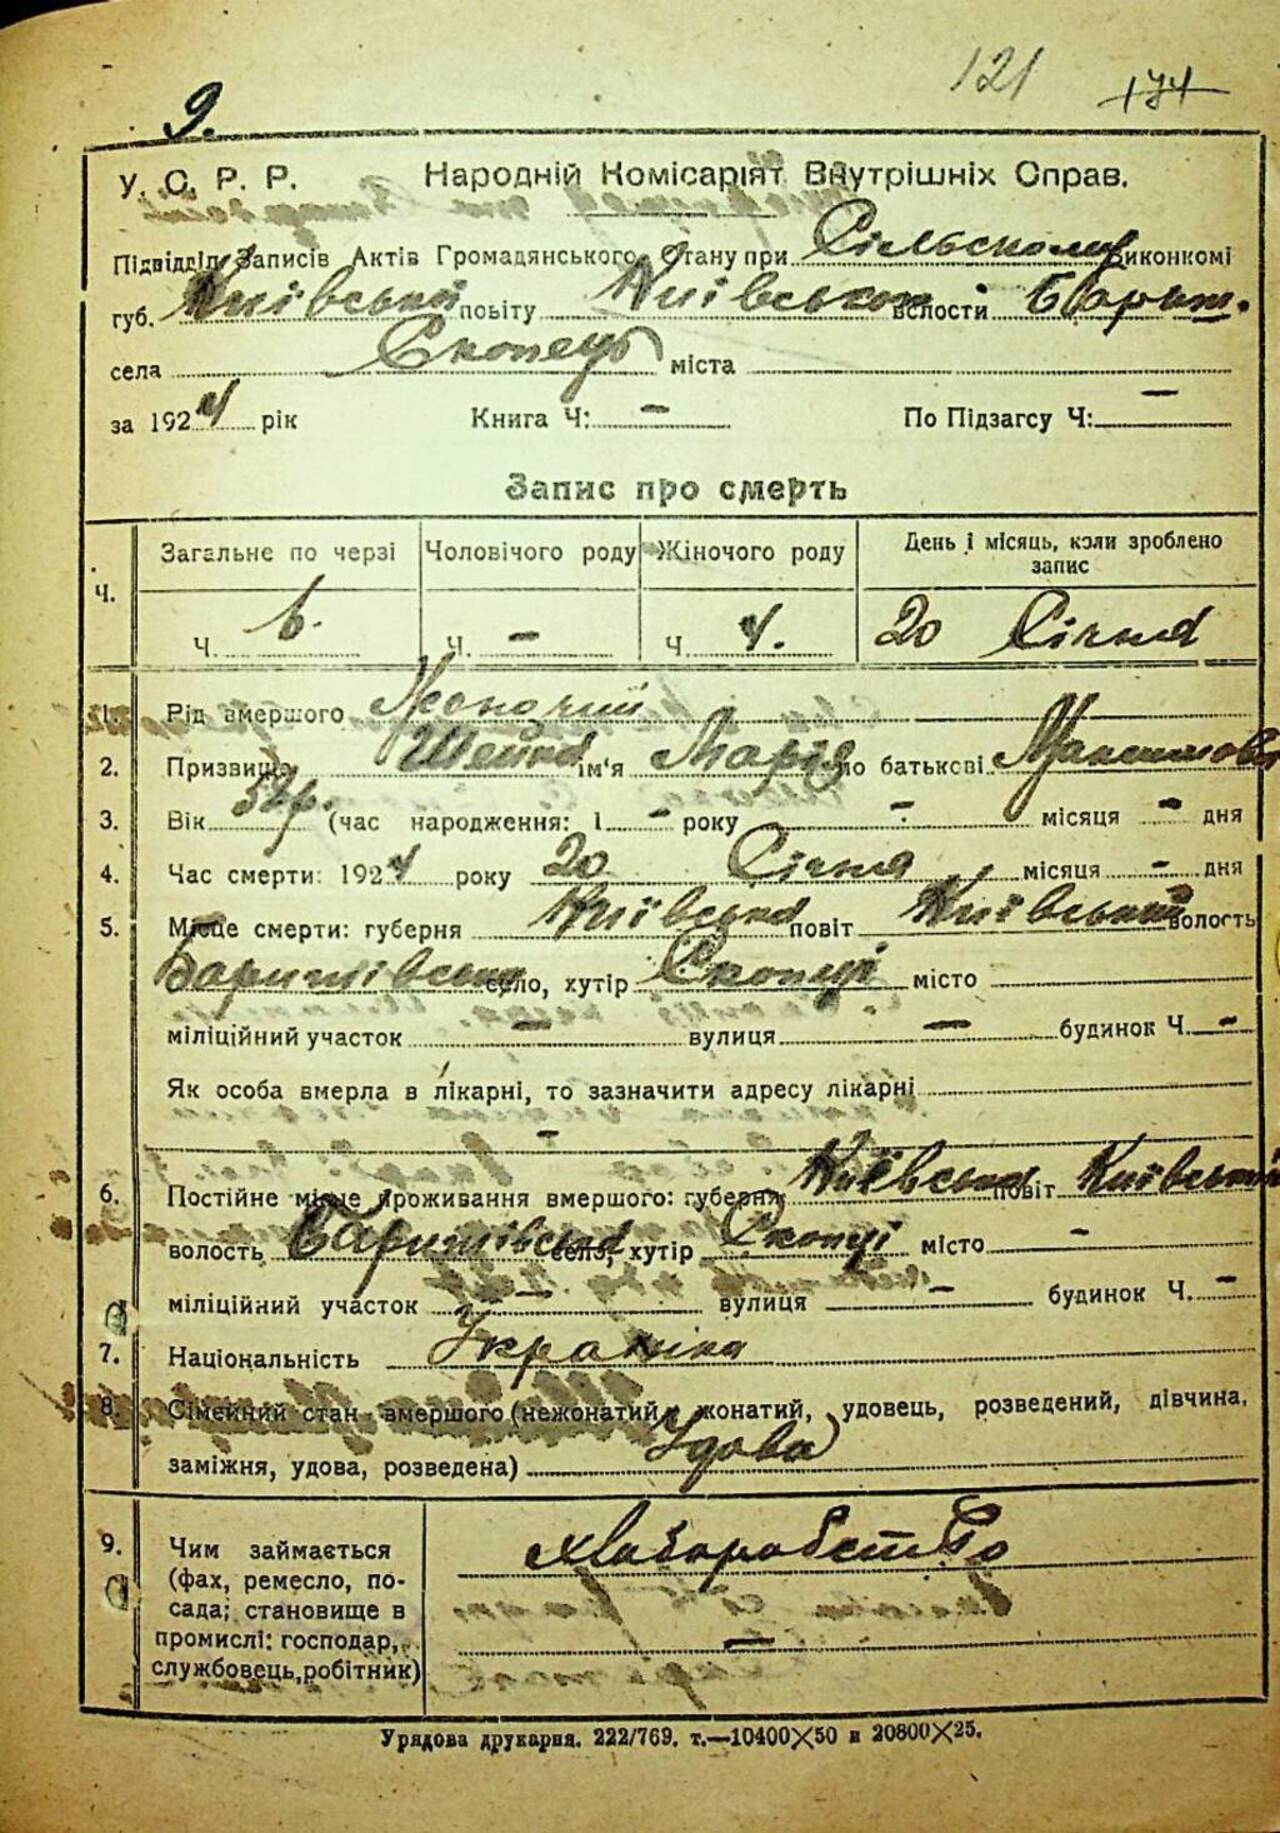 121 174
9.
У. С. Р. Р. Народній Комісаріят Внутрішніх Справ.
Підвідділ Записів Актів Громадянського Стану при Сільському Виконкомі
губ. Київський повіту Київського вслости Бориш.
села Скопець міста
за 1924 рік Книга Ч: — По Підзагсу Ч: —
Запис про смерть
Загальне по черзі Чоловічого роду Жіночого роду День і місяць, коли зроблено запис
Ч. Ч. 6. Ч. — Ч. 4. 20 Січня
1. Рід вмершого Жіночий
2. Призвище Шейко ім'я Марія по батькові Максимова
3. Вік 52 р. (час народження: 1 — року — місяця — дня
4. Час смерти: 1924 року 20 Січня місяця — дня
5. Місце смерти: губерня Київська повіт Київський волость
Баришівська село, хутір Скопці місто
міліційний участок — вулиця — будинок Ч. —
Як особа вмерла в лікарні, то зазначити адресу лікарні
—
6. Постійне місце проживання вмершого: губерня Київська повіт Київський
волость Баришівська село, хутір Скопці місто —
міліційний участок — вулиця — будинок Ч. —
7. Національність Українка
8. Сімейний стан вмершого (нежонатий, жонатий, удовець, розведений, дівчина,
заміжня, удова, розведена) Удова
9. Чим займається
(фах, ремесло, по-
сада; становище в
промислі: господар,
службовець, робітник)
Хліборобство
—
Урядова друкарня. 222/769. т.—10400X50 и 20800X25.